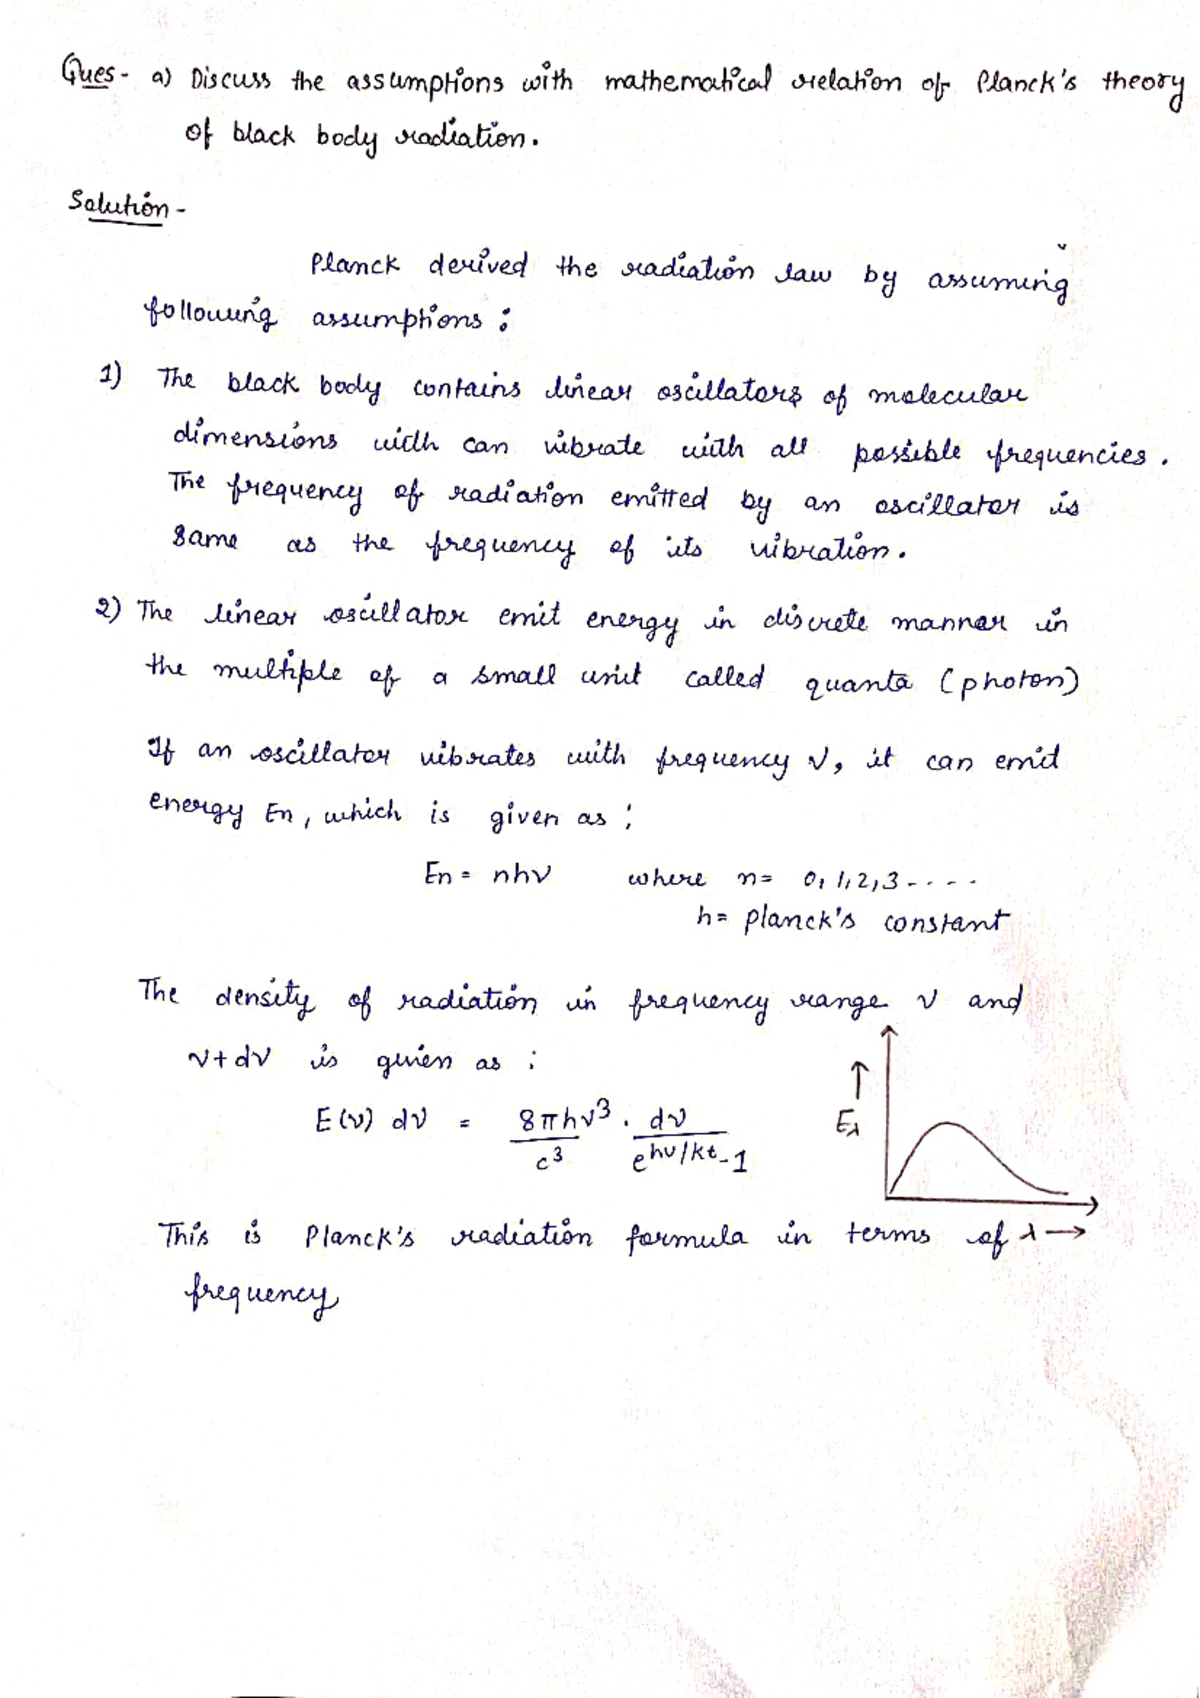 Ques- a) Discuss the assumptions with mathematical relation of Planck's theory
of black body radiation.
Solution -
Planck derived the radiation law by assuming
following assumptions :
1) The black body contains linear oscillators of molecular
dimensions widh can vibrate with all possible frequencies.
The frequency of radiation emitted by an oscillator is
same as the frequency of its vibration.
2) The linear oscillator emit energy in discrete manner in
the multiple of a small unit called quanta (photon)
If an oscillator vibrates with frequency ν, it can emit
energy En, which is given as ;
En = nhν where n= 0, 1, 2, 3 - - - -
h= planck's constant
The density of radiation in frequency range ν and
ν+dν is given as :
E(ν) dν = 8πhν³/c³ . dν/e^hν/kt -1
↑
Eλ
This is Planck's radiation formula in terms of
λ→
frequency